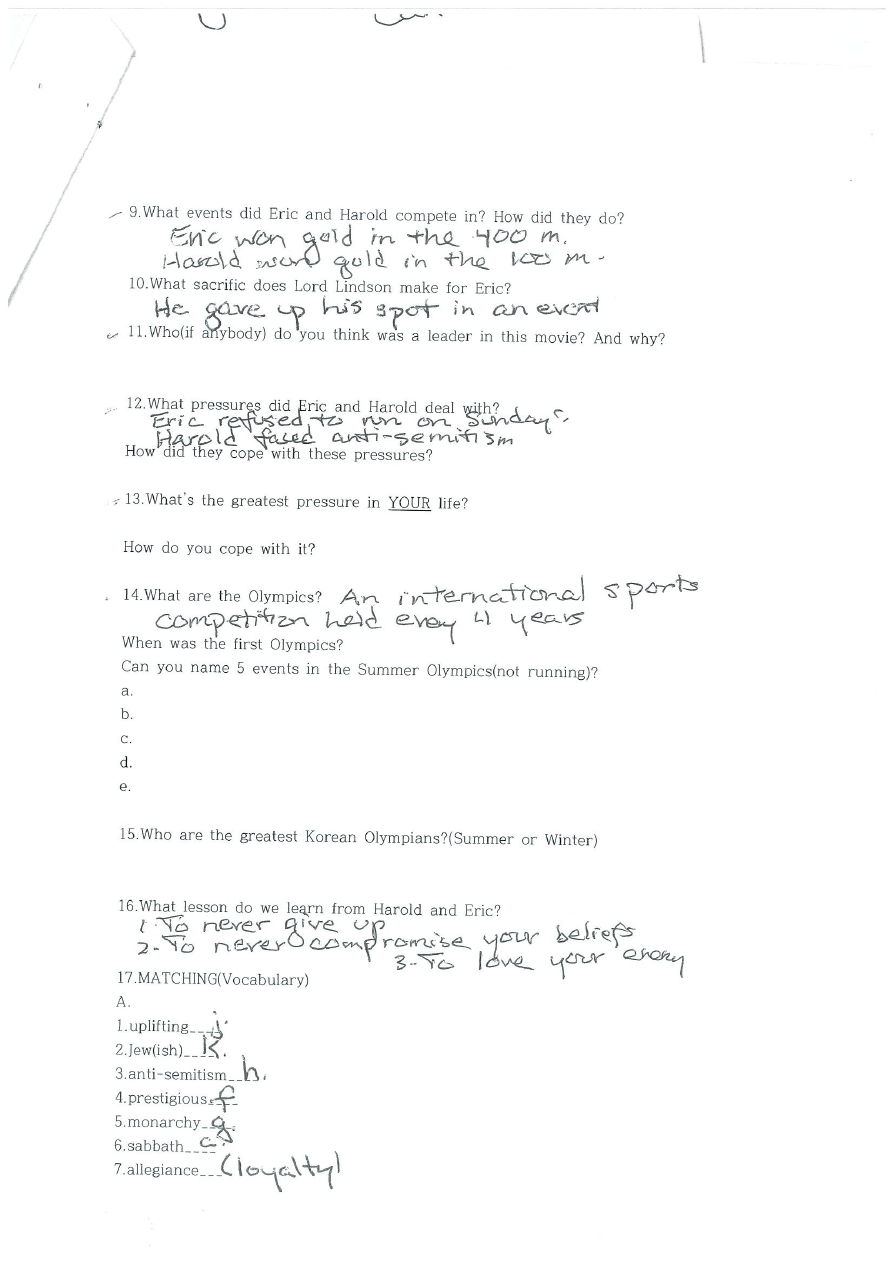 9.What events did Eric and Harold compete in? How did they do?
Eric won gold in the 400 m.
Harold won gold in the 100 m.
10.What sacrific does Lord Lindson make for Eric?
He gave up his spot in an event
11.Who(if anybody) do you think was a leader in this movie? And why?
12.What pressures did Eric and Harold deal with?
Eric refused to run on Sunday.
Harold faced anti-semitism
How did they cope with these pressures?
13.What's the greatest pressure in YOUR life?
How do you cope with it?
14.What are the Olympics? An international sports
competition held every 4 years
When was the first Olympics?
Can you name 5 events in the Summer Olympics(not running)?
a.
b.
c.
d.
e.
15.Who are the greatest Korean Olympians?(Summer or Winter)
16.What lesson do we learn from Harold and Eric?
1. To never give up
2. To never compromise your beliefs
3. To love your enemy
17.MATCHING(Vocabulary)
A.
1.uplifting___j.
2.Jew(ish)__k.
3.anti-semitism__h.
4.prestigious__f
5.monarchy__g.
6.sabbath____
7.allegiance___(loyalty)